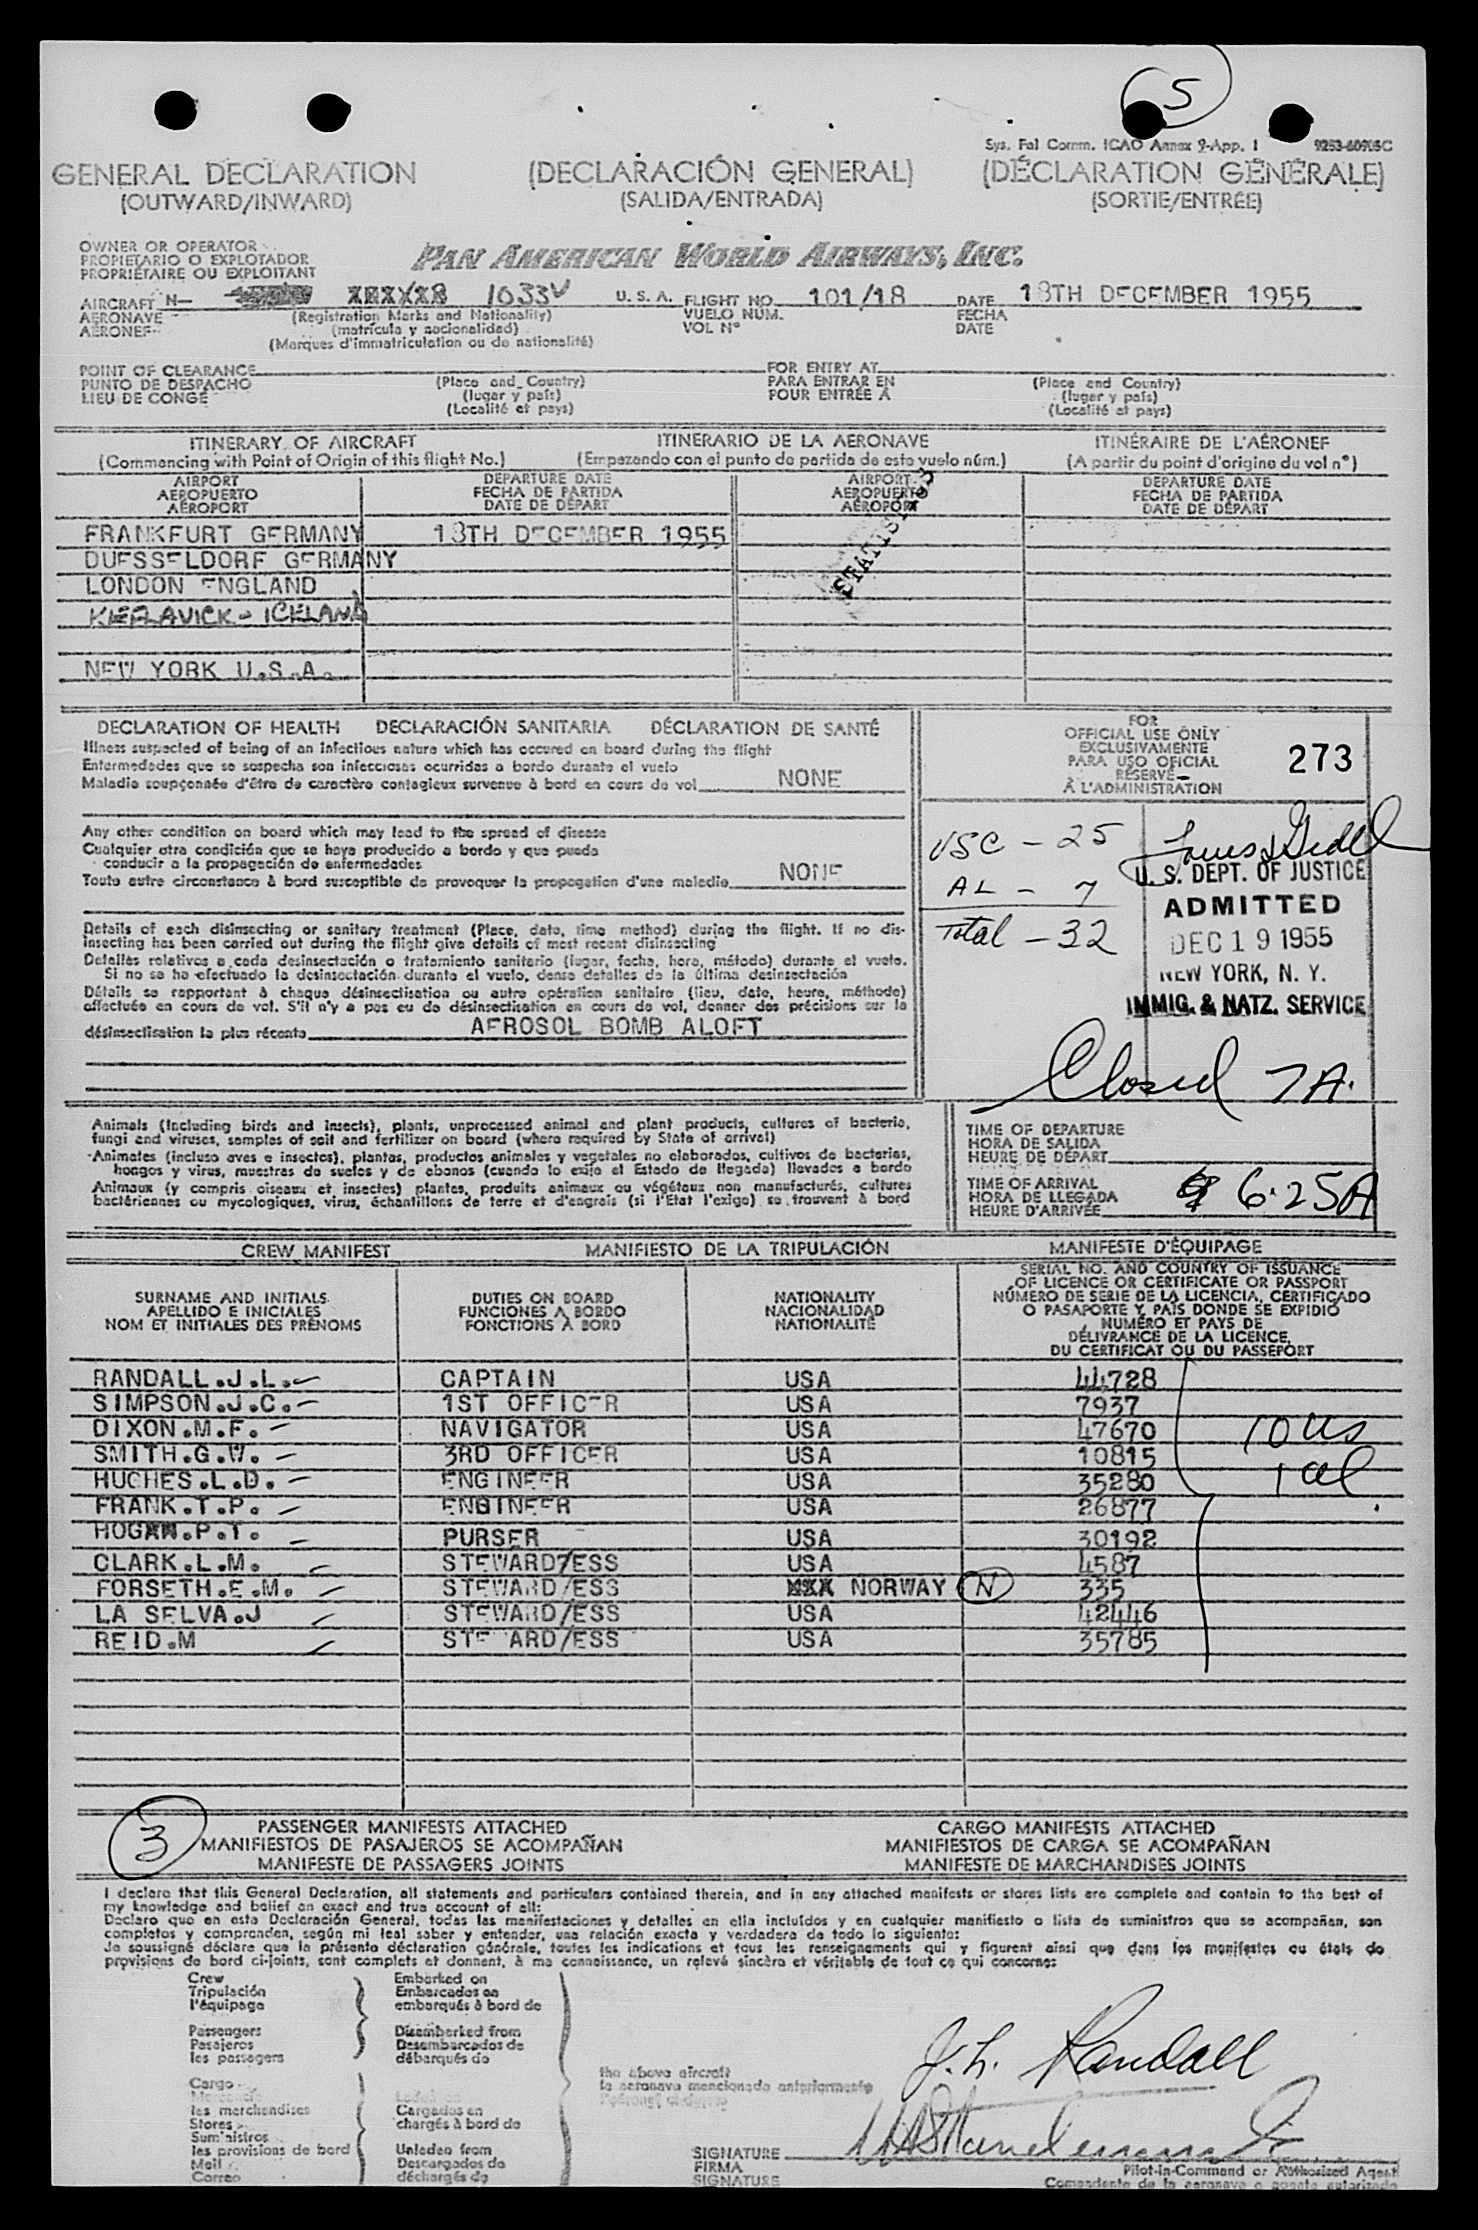 5
Sys. Fal Comm. ICAO Annex 9-App. 1
GENERAL DECLARATION (DECLARACIÓN GENERAL) (DÉCLARATION GÉNÉRALE)
(OUTWARD/INWARD) (SALIDA/ENTRADA) (SORTIE/ENTRÉE)
OWNER OR OPERATOR
PROPIETARIO O EXPLOTADOR
PROPRIÉTAIRE OU EXPLOITANT
PAN AMERICAN WORLD AIRWAYS, INC.
AIRCRAFT N— 1033V U. S. A. FLIGHT NO. 101/18 DATE 18TH DECEMBER 1955
AERONAVE (Registration Marks and Nationality) VUELO NÚM. FECHA
AÉRONEF (matrícula y nacionalidad) VOL N° DATE
(Marques d'immatriculation ou de nationalité)
POINT OF CLEARANCE FOR ENTRY AT
PUNTO DE DESPACHO (Place and Country) PARA ENTRAR EN (Place and Country)
LIEU DE CONGÉ (lugar y país) POUR ENTRÉE À (lugar y país)
(Localité et pays) (Localité et pays)
ITINERARY OF AIRCRAFT ITINERARIO DE LA AERONAVE ITINÉRAIRE DE L'AÉRONEF
(Commencing with Point of Origin of this flight No.) (Empezando con el punto de partida de este vuelo núm.) (A partir du point d'origine du vol n°)
AIRPORT DEPARTURE DATE AIRPORT DEPARTURE DATE
AEROPUERTO FECHA DE PARTIDA AEROPUERTO FECHA DE PARTIDA
AÉROPORT DATE DE DÉPART AÉROPORT DATE DE DÉPART
FRANKFURT GERMANY 18TH DECEMBER 1955
DUESSELDORF GERMANY
LONDON ENGLAND
KEFLAVICK - ICELAND
NEW YORK U.S.A.
DECLARATION OF HEALTH DECLARACIÓN SANITARIA DÉCLARATION DE SANTÉ
Illness suspected of being of an infectious nature which has occured on board during the flight
Enfermedades que se sospecha son infecciosas ocurridas a bordo durante el vuelo
Maladie soupçonnée d'être de caractère contagieux survenue à bord en cours de vol NONE
Any other condition on board which may lead to the spread of disease
Cualquier otra condición que se haya producido a bordo y que pueda
conducir a la propagación de enfermedades
Toute autre circonstance à bord susceptible de provoquer la propagation d'une maladie NONE
Details of each disinsecting or sanitary treatment (Place, date, time method) during the flight. If no dis-
insecting has been carried out during the flight give details of most recent disinsecting
Detalles relativos a cada desinsectación o tratamiento sanitario (lugar, fecha, hora, método) durante el vuelo.
Si no se ha efectuado la desinsectación durante el vuelo, dense detalles de la última desinsectación
Détails se rapportant à chaque désinsectisation ou autre opération sanitaire (lieu, date, heure, méthode)
effectuée en cours de vol. S'il n'y a pas eu de désinsectisation en cours de vol, donner des précisions sur la
désinsectisation la plus récente AEROSOL BOMB ALOFT
FOR
OFFICIAL USE ONLY
EXCLUSIVAMENTE
PARA USO OFICIAL
RÉSERVÉ
À L'ADMINISTRATION
273
USC - 25
AL - 7
Total - 32
U. S. DEPT. OF JUSTICE
ADMITTED
DEC 19 1955
NEW YORK, N. Y.
IMMIG. & NATZ. SERVICE
Closed 7A.
Animals (including birds and insects), plants, unprocessed animal and plant products, cultures of bacteria,
fungi and viruses, samples of soil and fertilizer on board (where required by State of arrival)
Animales (incluso aves e insectos), plantas, productos animales y vegetales no elaborados, cultivos de bacterias,
hongos y virus, muestras de suelos y de abonos (cuando lo exija el Estado de llegada) llevados a bordo
Animaux (y compris oiseaux et insectes) plantes, produits animaux ou végétaux non manufacturés, cultures
bactériennes ou mycologiques, virus, échantillons de terre et d'engrais (si l'Etat l'exige) se trouvant à bord
TIME OF DEPARTURE
HORA DE SALIDA
HEURE DE DÉPART
TIME OF ARRIVAL
HORA DE LLEGADA
HEURE D'ARRIVÉE 6:25A
CREW MANIFEST MANIFIESTO DE LA TRIPULACIÓN MANIFESTE D'ÉQUIPAGE
SURNAME AND INITIALS
APELLIDO E INICIALES
NOM ET INITIALES DES PRÉNOMS
DUTIES ON BOARD
FUNCIONES A BORDO
FONCTIONS À BORD
NATIONALITY
NACIONALIDAD
NATIONALITÉ
SERIAL NO. AND COUNTRY OF ISSUANCE
OF LICENCE OR CERTIFICATE OR PASSPORT
NÚMERO DE SERIE DE LA LICENCIA, CERTIFICADO
O PASAPORTE Y PAÍS DONDE SE EXPIDIÓ
NUMÉRO ET PAYS DE
DÉLIVRANCE DE LA LICENCE,
DU CERTIFICAT OU DU PASSEPORT
RANDALL.J.L. CAPTAIN USA 44728
SIMPSON.J.C. 1ST OFFICER USA 7937
DIXON.M.F. NAVIGATOR USA 47670 10 US
SMITH.G.W. 3RD OFFICER USA 10815
HUGHES.L.D. ENGINEER USA 35280 1 al
FRANK.T.P. ENGINEER USA 26877
HOGAN.P.T. PURSER USA 30192
CLARK.L.M. STEWARD/ESS USA 4587
FORSETH.E.M. STEWARD/ESS NORWAY N 335
LA SELVA.J STEWARD/ESS USA 42446
REID.M STEWARD/ESS USA 35785
3
PASSENGER MANIFESTS ATTACHED CARGO MANIFESTS ATTACHED
MANIFIESTOS DE PASAJEROS SE ACOMPAÑAN MANIFIESTOS DE CARGA SE ACOMPAÑAN
MANIFESTE DE PASSAGERS JOINTS MANIFESTE DE MARCHANDISES JOINTS
I declare that this General Declaration, all statements and particulars contained therein, and in any attached manifests or stores lists are complete and contain to the best of
my knowledge and belief an exact and true account of all:
Declaro que en esta Declaración General, todas las manifestaciones y detalles en ella incluídos y en cualquier manifiesto o lista de suministros que se acompañan, son
completos y comprenden, según mi leal saber y entender, una relación exacta y verdadera de todo lo siguiente:
Je soussigné déclare que la présente déclaration générale, toutes les indications et tous les renseignements qui y figurent ainsi que dans les manifestes ou états de
provisions de bord ci-joints, sont complets et donnent, à ma connaissance, un relevé sincère et véritable de tout ce qui concerne:
Crew Embarked on
Tripulación Embarcados en
l'équipage embarqués à bord de
Passengers Disembarked from
Pasajeros Desembarcados de
les passagers débarqués de
the above aircraft
la aeronave mencionada anteriormente
Cargo
les merchandises Cargados en
Stores chargés à bord de
Suministros
les provisions de bord Unladen from
Mail Descargados de
Correo déchargés de
J. L. Randall
SIGNATURE
FIRMA
SIGNATURE
Pilot-in-Command or Authorized Agent
Comandante de la aeronave o agente autorizado